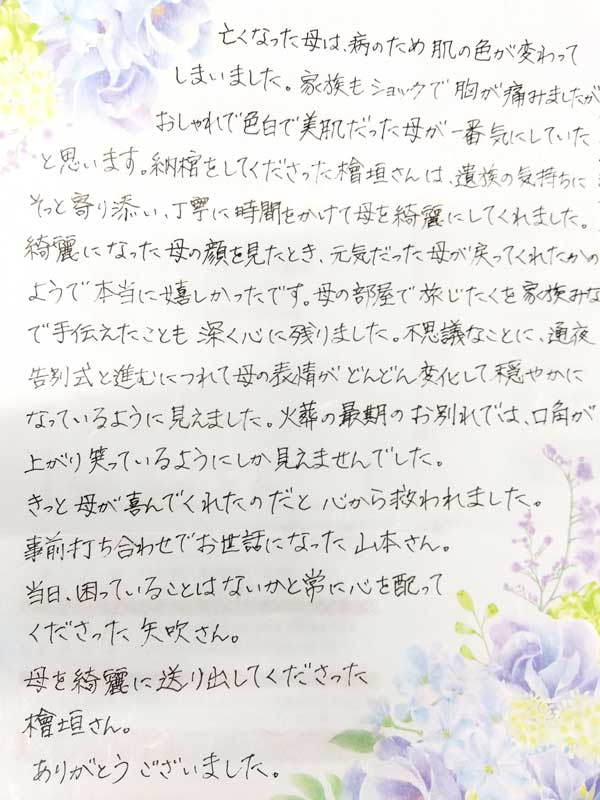 亡くなった母は、病のため肌の色が変わって
しまいました。家族もショックで胸が痛みましたが
おしゃれで色白で美肌だった母が一番気にしていた
と思います。納棺をしてくださった檜垣さんは、遺族の気持ちに
そっと寄り添い、丁寧に時間をかけて母を綺麗にしてくれました。
綺麗になった母の顔を見たとき、元気だった母が戻ってくれたかの
ようで本当に嬉しかったです。母の部屋で旅じたくを家族みな
で手伝えたことも深く心に残りました。不思議なことに、通夜
告別式と進むにつれて母の表情がどんどん変化して穏やかに
なっているように見えました。火葬の最期のお別れでは、口角が
上がり笑っているようにしか見えませんでした。
きっと母が喜んでくれたのだと心から救われました。
事前打ち合わせでお世話になった山本さん。
当日、困っていることはないかと常に心を配って
くださった矢吹さん。
母を綺麗に送り出してくださった
檜垣さん。
ありがとうございました。